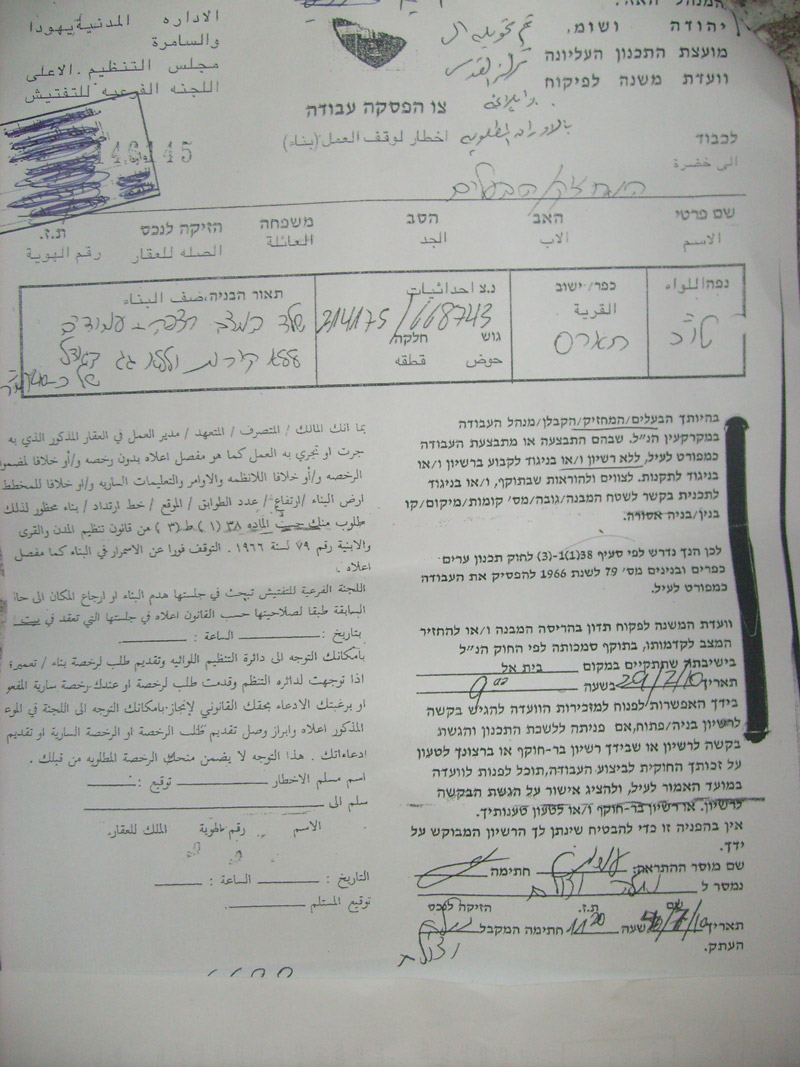 המנהל האז
יהודה ושומ.
מועצת התכנון העליונה
וועדת משנה לפיקוח
الاداره المدنية يهودا
والسامرة
مجلس التنظيم .الاعلى
اللجنه الفرعيه للتفتيش
צו הפסקה עבודה
اخطار لوقف العمل (بناء)
146145
לכבוד
الى خضرة
המחזיק/הבעלים
שם פרטי האב הסב משפחה הזיקה לנכס ת.ז.
الاسم الاب الجد العائلة الصله للعقار رقم الهوية
נפה اللواء כפר/ישוב القرية נ.צ احداثيات תאור הבניה،صف البناء
214175/668743
גוש חלקה
حوض قطقه
בהיותך הבעלים/המחזיק/הקבלן/מנהל העבודה
במקרקעין הנ״ל. שבהם התבצעה או מתבצעת העבודה
כמפורט לעיל, ללא רשיון ו/או בניגוד לקבוע ברשיון ו/או
בניגוד לתקנות. לצווים ולהוראות שבתוקף, ו/או בניגוד
לתכנית בקשר לשטח המבנה/גובה/מס׳ קומות/מיקום/קו
בנין/בניה אסורה.
לכן הנך נדרש לפי סעיף 38(1)-(3) לחוק תכנון ערים
כפרים ובנינים מס׳ 79 לשנת 1966 להפסיק את העבודה
כמפורט לעיל.
וועדת המשנה לפקוח תדון בהריסה המבנה ו/או להחזיר
המצב לקדמותו, בתוקף סמכותה לפי החוק הנ״ל
בישיבתה שתתקיים במקום בית אל
תאריך 29/7/10 בשעה 9⁰⁰
בידך האפשרות לפנות למזכירות הוועדה להגיש בקשה
לרשיון בניה/פתוח,אם פניתה ללשכת התכנון והגשת
בקשה לרשיון או שבידך רשיון בר-תוקף או ברצונך לטעון
על זכותך החוקית לביצוע העבודה,תוכל לפנות לוועדה
במועד האמור לעיל, ולהציג אישור על הגשת הבקשה
לרשיון. או רשיון בר-תוקף ו/או לטעון טענותיך.
אין בהפניה זו כדי להבטיח שינתן לך הרשיון המבוקש על
ידך.
שם מוסר ההתראה: חתימה
נמסר ל
שם ת.ז. הזיקה לנכס
תאריך /7/10 שעה 11²⁰ חתימה המקבל
העתק.
بما انك المالك / المتصرف / المتعهد / مدير العمل في العقار المذكور الذي به
جرت او تجري به العمل كما هو مفصل اعلاه بدون رخصه و/أو خلافا لمضمو
الرخصه و/أو خلافا اللانظمه والاوامر والتعليمات الساريه و/او خلافا للمخطط
ارض البناء /ارتفاع/ عدد الطوابق / الموقع / خط ارتداد / بناء محظور لذلك
طلوب منك حسب الماده ٣٨ (١) ط (٣) من قانون تنظيم المدن والقرى
والابنية رقم ٧٩ لسنة ١٩٦٦ . التوقف فورا عن الاسمرار في البناء كما مفصل
اعلاه .
اللجنة الفرعية للتفتيش تبحث في جلستها هدم البناء او ارجاع المكان الى حا
السابقة طبقا لصلاحيتها حسب القانون اعلاه في جلستها التي تعقد في
بتاريخ : الساعة :
بامكانك التوجه الى دائرة التنظيم اللوائيه وتقديم طلب لرخصة بناء / تعمير؛
اذا توجهت لدائره التنظم وقدمت طلب لرخصة او عندك رخصة سارية المفعو
او برغبتك الادعاء بحقك القانوني لإنجاز بامكانك التوجه الى اللجنة في الموع
المذكور اعلاه وابراز وصل تقديم طلب الرخصة او الرخصة السارية او تقديم
ادعاءاتك . هذا التوجه لا يضمن منحك الرخصة المطلوبه من قبلك .
اسم مسلم الاخطار توقيع :
سلم الى
الاسم رقم الهوية الملك للعقار.
التاريخ : الساعة :
توقيع المستلم